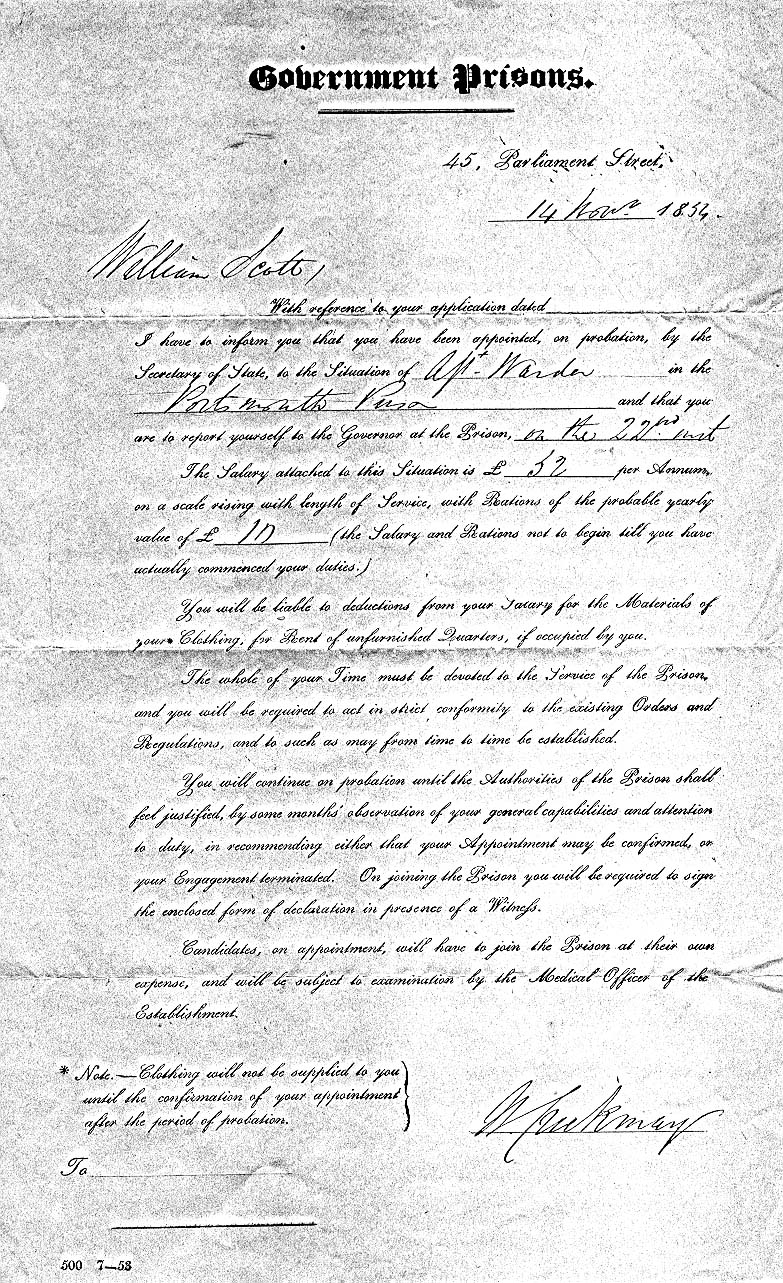 Government Prisons.
45, Parliament Street,
14 Novr 1854.
William Scott,
With reference to your application dated
I have to inform you that you have been appointed, on probation, by the
Secretary of State, to the Situation of Asst. Warder in the
Portsmouth Prison and that you
are to report yourself to the Governor at the Prison, on the 22nd inst
The Salary attached to this Situation is £ 52 per Annum,
on a scale rising with length of Service, with Rations of the probable yearly
value of £ (the Salary and Rations not to begin till you have
actually commenced your duties.)
You will be liable to deductions from your Salary for the Materials of
your* Clothing, for Rent of unfurnished Quarters, if occupied by you.
The whole of your Time must be devoted to the Service of the Prison,
and you will be required to act in strict conformity to the existing Orders and
Regulations, and to such as may from time to time be established.
You will continue on probation until the Authorities of the Prison shall
feel justified, by some months' observation of your general capabilities and attention
to duty, in recommending either that your Appointment may be confirmed, or
your Engagement terminated. On joining the Prison you will be required to sign
the enclosed form of declaration in presence of a Witness.
Candidates, on appointment, will have to join the Prison at their own
expense, and will be subject to examination by the Medical Officer of the
Establishment.
* Note.—Clothing will not be supplied to you
until the confirmation of your appointment
after the period of probation.
To
500 7—53